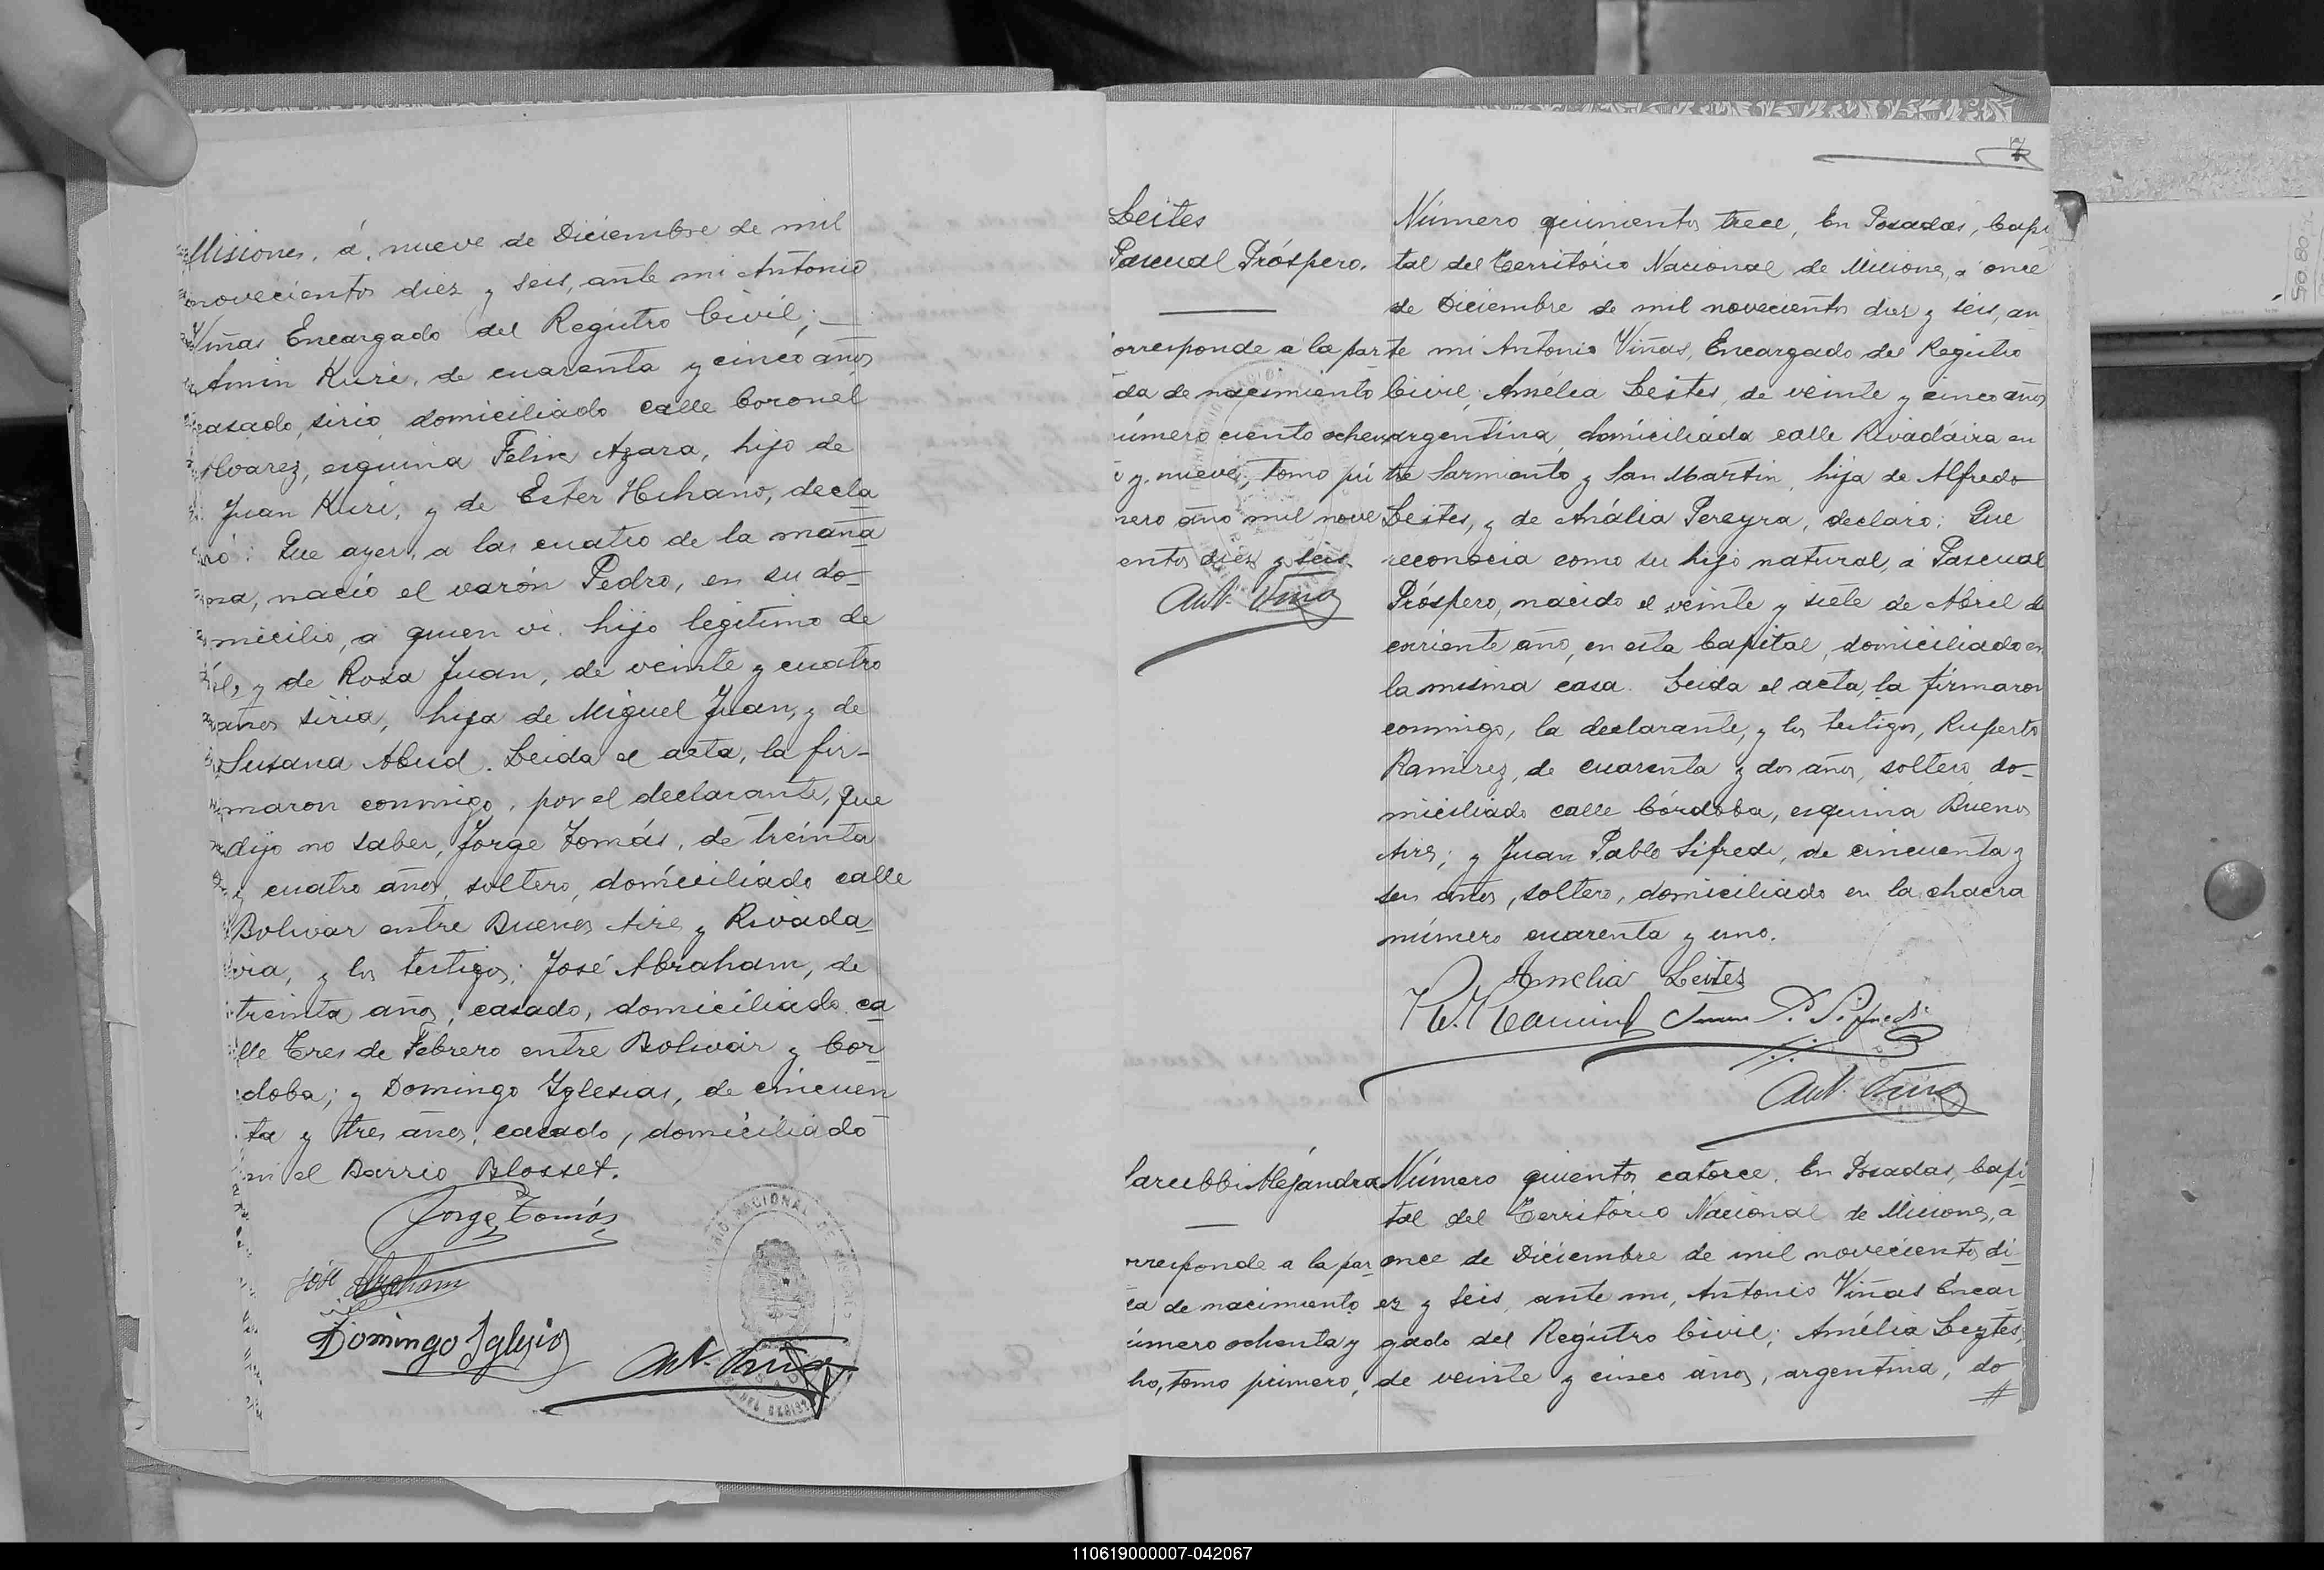 Misiones, á, nueve de Diciembre de mil
novecientos diez y seis, ante mi Antonio
Viñas Encargado del Registro Civil;
Amin Kuri, de cuarenta y cinco años
casado, sirio, domiciliado calle Coronel
Alvarez, esquina Felix Azara, hijo de
Juan Kuri, y de Ester Hchano, decla
ró: Que ayer, a las cuatro de la maña
na, nació el varón Pedro, en su do-
micilio, a quien vi. hijo legitimo de
él, y de Rosa Juan, de veinte y cuatro
años siria, hija de Miguel Juan, y de
Susana Abud. Leida el acta, la fir-
maron conmigo, por el declarante, que
dijo no saber, Jorge Tomás, de treinta
y cuatro años, soltero, domiciliado calle
Bolivar entre Buenos Aires y Rivada
via, y los testigos: José Abraham, de
treinta años, casado, domiciliado ca
lle Tres de Febrero entre Bolivar y Cor
doba; y Domingo Yglesias, de cincuen
ta y tres años, casado, domiciliado
en el Barrio Blosset.
Jorge Tomás
José Abraham
Domingo Iglesias
Ant. Viñas
7
Leites
Pascual Próspero.
orresponde a la par
da de nacimiento
úmero ciento ochen
a y nueve, tomo pri
mero año mil nove
entos diez y seis.
Ant. Viñas
Número quinientos trece, En Posadas, Capi
tal del Território Nacional de Misiones, a once
de Diciembre de mil novecientos diez y seis, an
te mi Antonio Viñas, Encargado del Registro
Civil; Amélia Leites, de veinte y cinco años
argentina, domiciliada calle Rivadavia en
tre Sarmiento y San Martin, hija de Alfredo
Leites, y de Anália Pereyra, declaro: Que
reconocia como su hijo natural, a Pascual
Próspero, nacido el veinte y siete de Abril de
corriente año, en esta Capital, domiciliado en
la misma casa. Leida el acta, la firmaron
conmigo, la declarante, y los testigos, Ruperto
Ramirez, de cuarenta y dos años, soltero, do-
miciliado calle Córdoba, esquina Buenos
Aires; y Juan Pablo Sifredi, de cincuenta y
seis años, soltero, domiciliado en la chacra
número cuarenta y uno.
Amelia Leites
R. Ramirez Juan P. Sifredi
Ant. Viñas
Carubbi Aléjandra
rresponde a la par
da de nacimiento
úmero ochenta y
ho, tomo primero,
Número quientos catorce. En Posadas, Capi-
tal del Território Nacional de Misiones, a
once de Diciembre de mil novecientos di-
ez y seis, ante mi, Antonio Viñas Encar
gado del Registro Civil; Amélia Leytes,
de veinte y cinco años, argentina, do
#
110619000007-042067